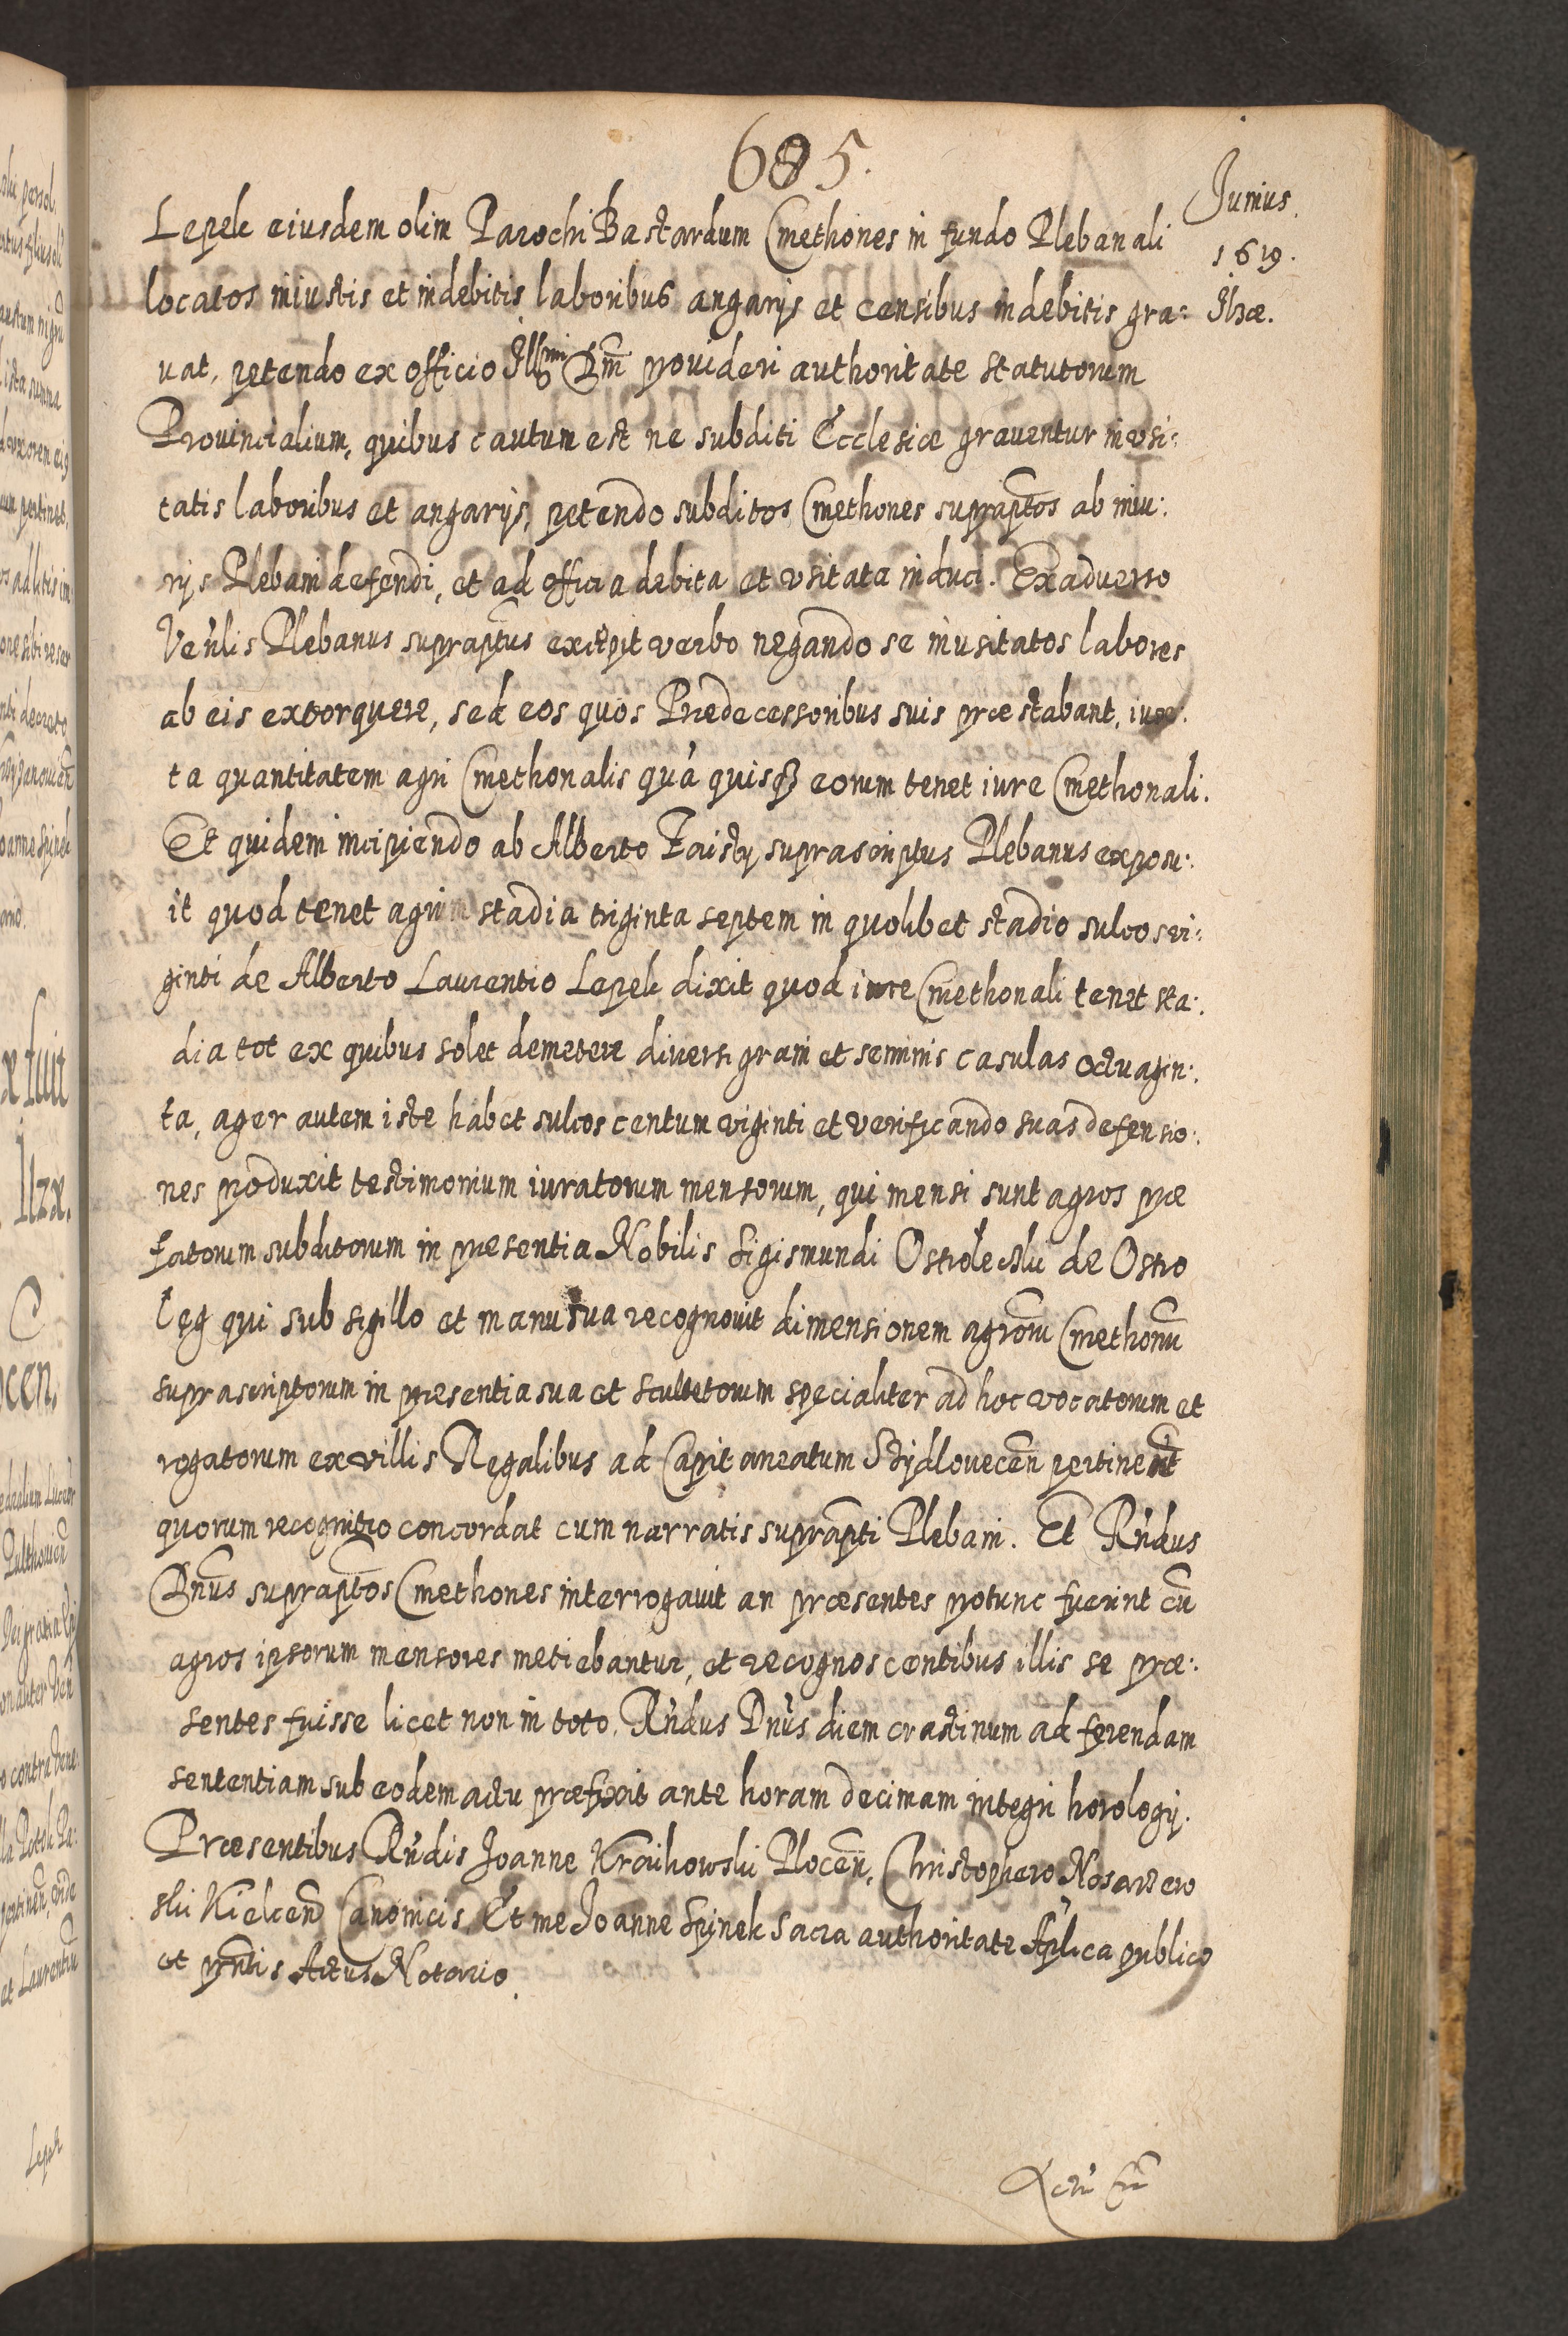 685.
Junius.
1619.
Ilzæ.
Lepek eiusdem olim Parochi Bastardum Cmethones in fundo Plebanali
locatos iniustis et indebitis laboribus angarijs et censibus indebitis gra:
uat, petendo ex officio Illmi Dni prouideri authoritate statutorum
Prouincialium, quibus cautum est ne subditi Ecclesiæ grauentur inusi:
tatis laboribus et angarijs, petendo subditos Cmethones supraptos ab iniu:
rijs Plebani defendi, et ad officia debita et vsitata induci. Ex aduerso
Venlis Plebanus supraptus excepit verbo negando se inusitatos labores
ab eis extorquere, sed eos quos Prædecessoribus suis præstabant, iux:
ta quantitatem agri Cmethonalis quã quisq eorum tenet iure Cmethonali.
Et quidem incipiendo ab Alberto suprascriptus Plebanus exposu:
it quod tenet agrum stadia triginta septem in quolibet stadio sulcos vi:
ginti de Alberto Laurentio Lepek dixit quod iure Cmethonali tenet sta:
dia tot ex quibus solet demetere diuersi grani et seminis casulas octuagin:
ta, ager autem iste habet sulcos centum viginti et verificando suas defensio:
nes produxit testimonium iuratorum mensorum, qui mensi sunt agros præ
fatorum subditorum in præsentia Nobilis Sigismundi Ostrołecski de Ostro
łęg qui sub sigillo et manu sua recognouit dimensionem agrorũ Cmethonũ
suprascriptorum in præsentia sua et scultetorum specialiter ad hoc vocatorum et
rogatorum ex villis Regalibus ad Capitaneatum Szydlouecen pertinent
quorum recognitio concordat cum narratis suprapti Plebani. Et Rndus
Dnus supraptos Cmethones interrogauit an præsentes protunc fuerint cũ
agros ipsorum mensores metiebantur, et recognoscentibus illis se præ:
sentes fuisse licet non in toto, Rndus Dnus diem crastinum ad ferendam
sententiam sub eodem actu præfixit ante horam decimam integri horologij.
Præsentibus Rndis Joanne Kraikowski Plocen, Christophero Nosarzew
ski Kielcen Canonicis Et me Joanne Spinek Sacra authoritate Aplica publico
et pntis Actus Notario.